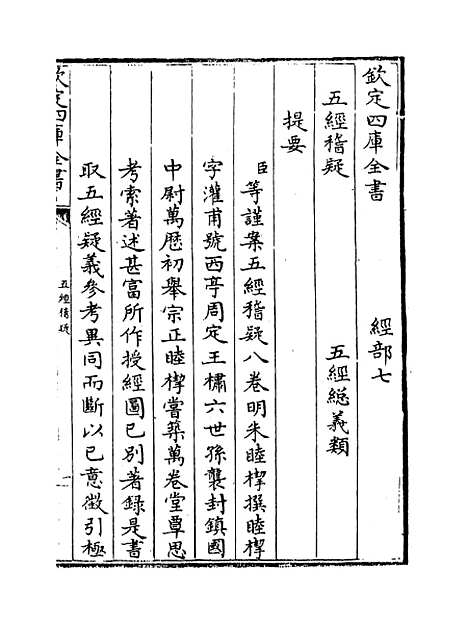 欽定四庫全書　經部七
五經稽疑　五經總義類
提要
臣等謹案五經稽疑八卷明朱睦㮮撰睦㮮
字灌甫號西亭周定王橚六世孫襲封鎮國
中尉萬歷初舉宗正睦㮮嘗築萬卷堂覃思
考索著述甚富所作授經圖已别著錄是書
取五經疑義參考異同而斷以已意徵引極
欽定四庫全書
五經稽疑
一